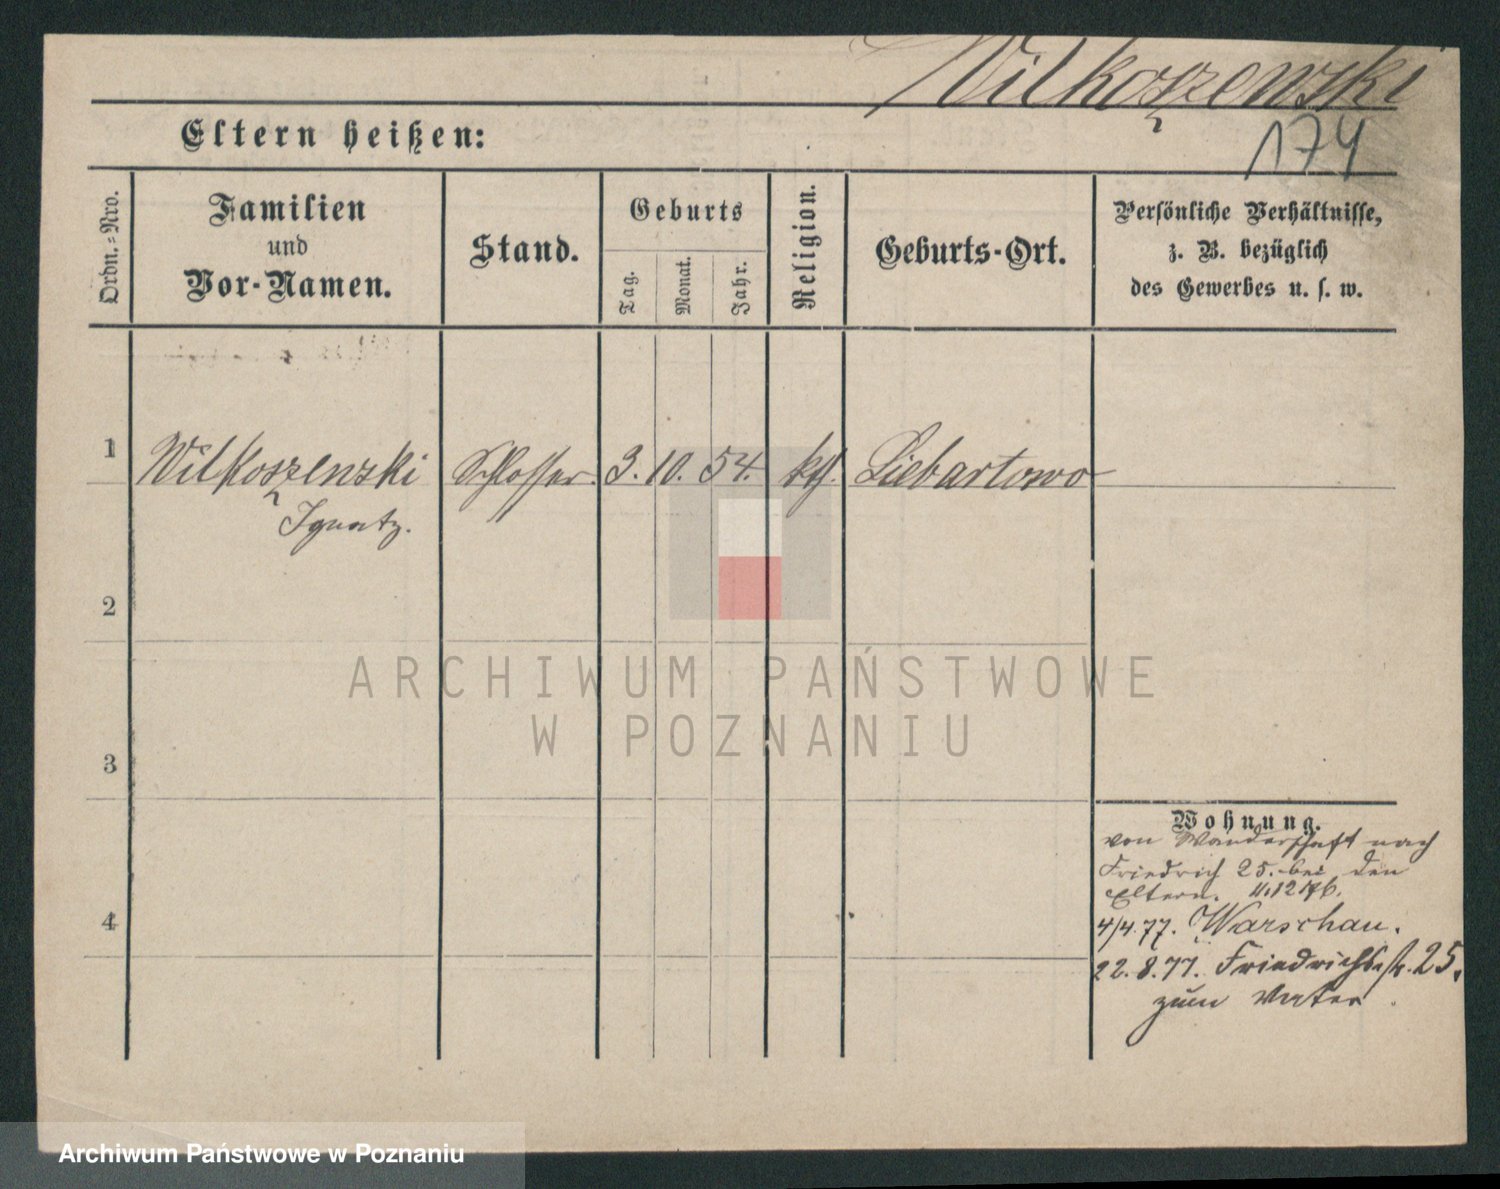 Wilkoszewski
174
Eltern heißen:
Ordn.-Nro.
Familien
und
Vor-Namen.
Stand.
Geburts
Tag.
Monat.
Jahr.
Religion.
Geburts-Ort.
Persönliche Verhältnisse,
z. B. bezüglich
des Gewerbes u. s. w.
1
Wilkoszewski
Ignatz.
Schlosser.
3. 10. 54.
kth.
Liebartowo
2
3
4
Wohnung.
von Wanderschaft nach
Friedrich 25. bei den
Eltern. 11.12.76.
4/4.77. Warschau.
22.8.77. Friedrichstr. 25.
zum Vater.
ARCHIWUM PAŃSTWOWE
W POZNANIU
Archiwum Państwowe w Poznaniu